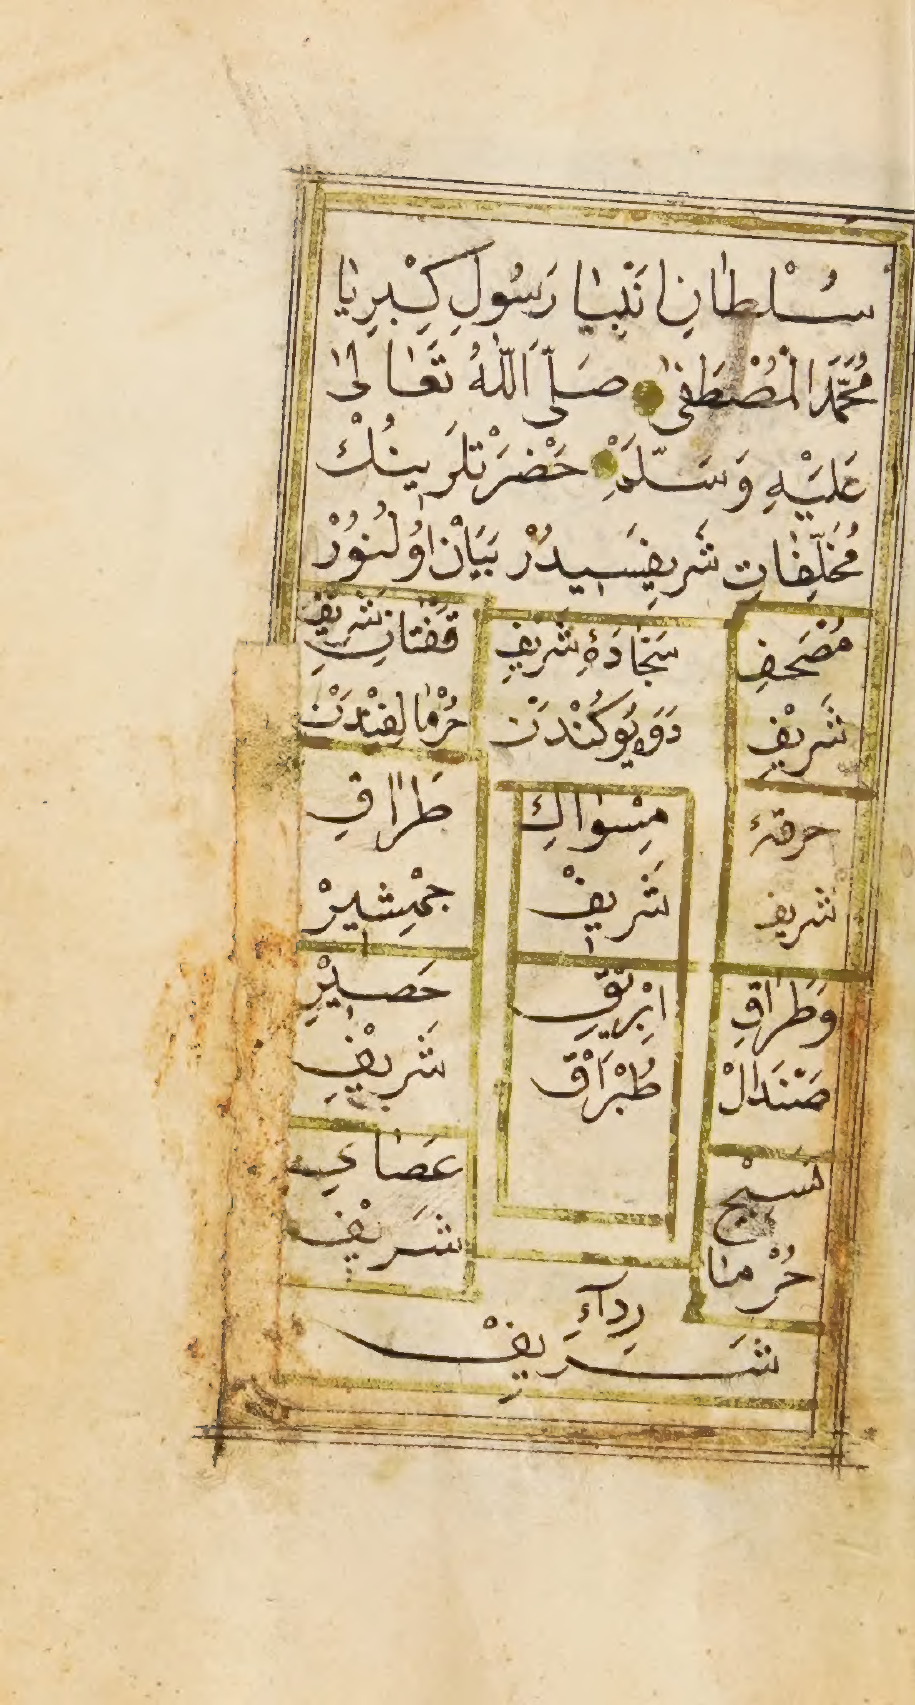 سُلْطَانِ اَنْبِيَا رَسُولِ كِبْرِيَا
مُحَمَّدَ الْمُصْطَفٰى صَلَّى اللّٰهُ تَعَالٰى
عَلَيْهِ وَسَلَّمَ حَضْرَتْلَرِينُكْ
مُخَلَّفَاتِ شَرِيفَسِيدُرْ بَيَانْ اوُلُنُورْ
مُصْحَفِ
شَرِيْفِ
سَجَّادَۀِ شَرِيفِ
دَوَه يُوكُنْدَنْ
قَفْتَانِ شَرِيْفِ
خُرْمَا لِفِنْدَنْ
خرقۀ
شريف
مِسْوَاكِ
شَرِيفْ
طَرَاقِ
جِمْشِيرْ
وَطَرَاقِ
صَنْدَالْ
اِبْرِيْقِ
طُبْرَاقْ
حَصِيْرِ
شَرِيْفِ
تَسْبِيْحِ
خُرْمَا
عَصَايِ
شَرِيْفِ
رِدَآءِ
شَرِيفْ